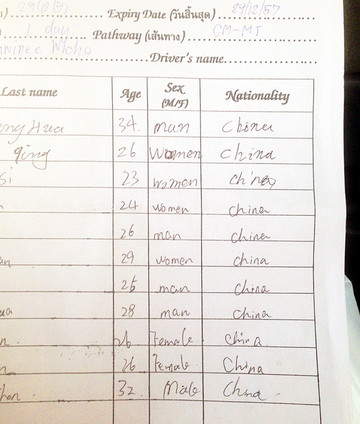 29/12/57 Expiry Date (วันสิ้นสุด) 29/12/57
1 day Pathway (เส้นทาง) CM-MJ
Driver's name
Last name Age Sex (M/F) Nationality
Hua 34 man China
qing 26 Women China
si 23 women china
24 women china
26 man china
29 women china
25 man china
28 man China
26 Female China
26 Female China
32 Male China